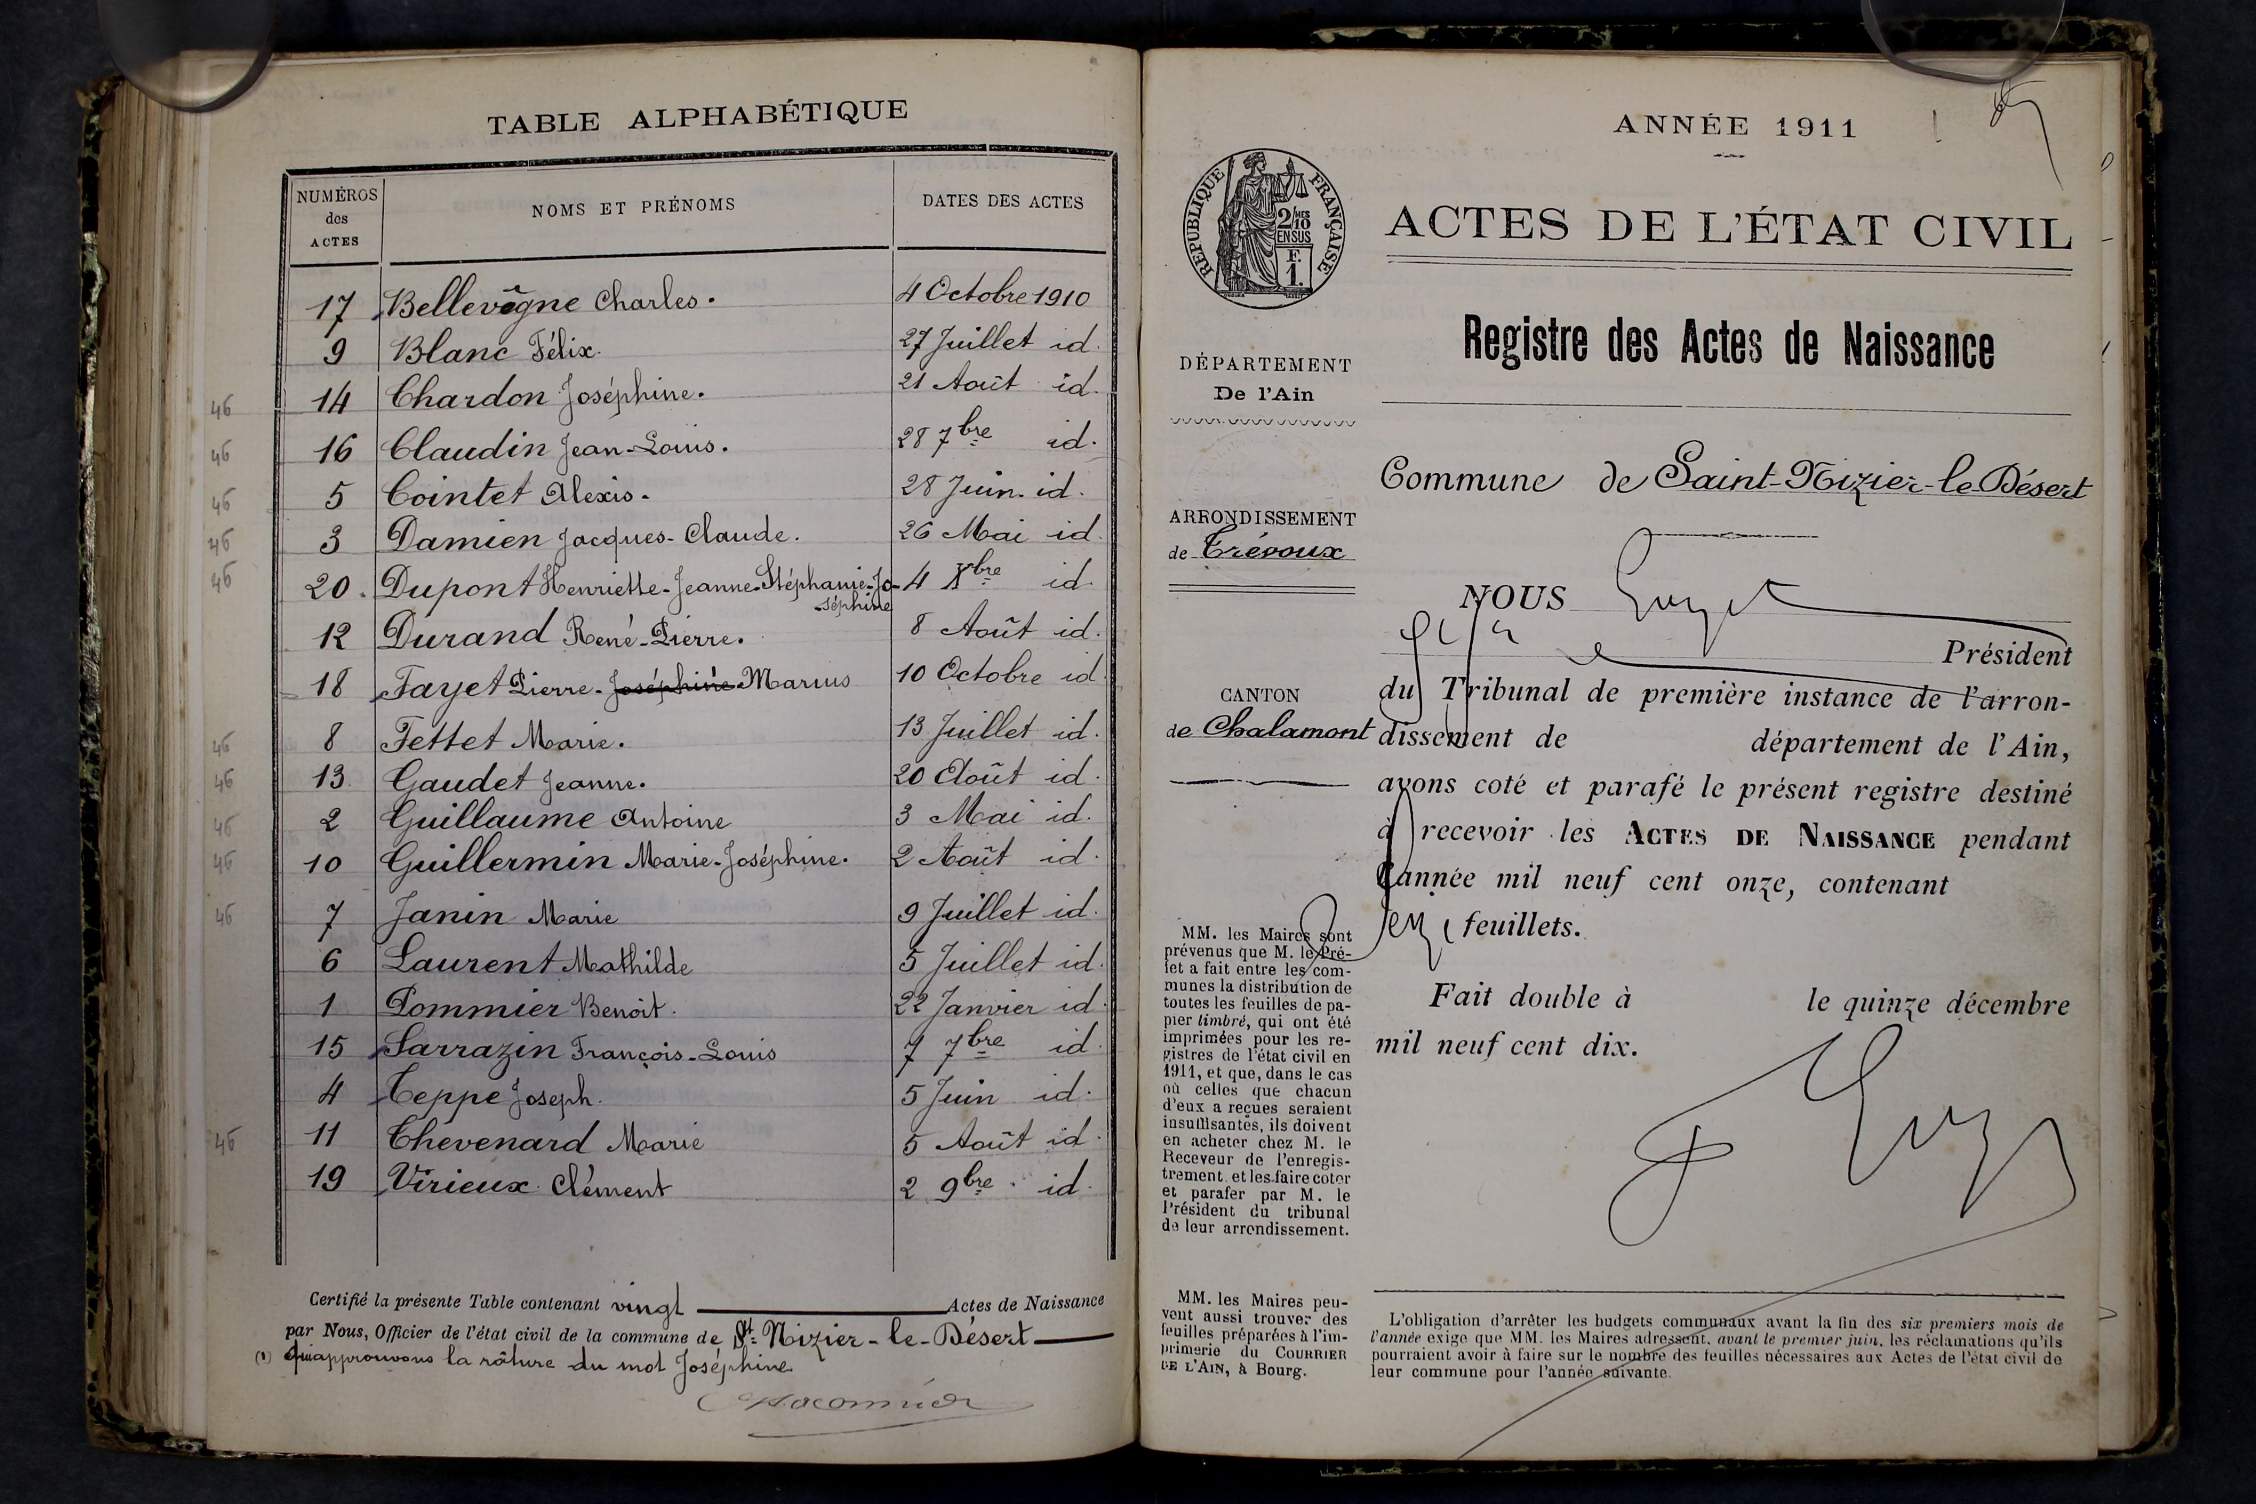 TABLE ALPHABÉTIQUE
NUMÉROS des ACTES NOMS ET PRÉNOMS DATES DES ACTES
17 Bellevègne Charles. 4 Octobre 1910
9 Blanc Félix. 27 Juillet id.
46 14 Chardon Joséphine. 21 Août id.
46 16 Claudin Jean-Louis. 28 7bre id.
46 5 Cointet Alexis. 28 Juin. id.
46 3 Damien Jacques-Claude. 26 Mai id.
46 20. Dupont Henriette-Jeanne-Stéphanie-Jo- 4 Xbre id.
-séphine
12 Durand René-Pierre. 8 Août id.
18 Fayet Pierre-Joséphine-Marius 10 Octobre id.
46 8 Fettet Marie. 13 Juillet id.
46 13 Gaudet Jeanne. 20 Août id.
46 2 Guillaume Antoine 3 Mai id.
46 10 Guillermin Marie-Joséphine. 2 Août id.
46 7 Janin Marie 9 Juillet id.
6 Laurent Mathilde 5 Juillet id.
1 Pommier Benoit. 22 Janvier id.
15 Sarrazin François-Louis 7 7bre id.
4 Teppe Joseph. 5 Juin id.
46 11 Chevenard Marie 5 Août id.
19 Virieux Clément 2 9bre. id.
Certifié la présente Table contenant vingt Actes de Naissance
par Nous, Officier de l'état civil de la commune de St. Nizier-le-Désert
(1) qui approuvons la râture du mot Joséphine.
ANNÉE 1911
RÉPUBLIQUE FRANÇAISE
2/10 MES
EN SUS
F.
1.
ACTES DE L'ÉTAT CIVIL
Registre des Actes de Naissance
DÉPARTEMENT
De l'Ain
Commune de Saint-Nizier-le-Désert
ARRONDISSEMENT
de Trévoux
NOUS
Président
CANTON
de Chalamont
du Tribunal de première instance de l'arron-
dissement de département de l'Ain,
avons coté et parafé le présent registre destiné
à recevoir les ACTES DE NAISSANCE pendant
l'année mil neuf cent onze, contenant
feuillets.
Fait double à le quinze décembre
mil neuf cent dix.
MM. les Maires sont
prévenus que M. le Pré-
fet a fait entre les com-
munes la distribution de
toutes les feuilles de pa-
pier timbré, qui ont été
imprimées pour les re-
gistres de l'état civil en
1911, et que, dans le cas
où celles que chacun
d'eux a reçues seraient
insuffisantes, ils doivent
en acheter chez M. le
Receveur de l'enregis-
trement et les faire coter
et parafer par M. le
Président du tribunal
de leur arrondissement.
MM. les Maires peu-
vent aussi trouver des
feuilles préparées à l'im-
primerie du COURRIER
DE L'AIN, à Bourg.
L'obligation d'arrêter les budgets communaux avant la fin des six premiers mois de
l'année exige que MM. les Maires adressent, avant le premier juin, les réclamations qu'ils
pourraient avoir à faire sur le nombre des feuilles nécessaires aux Actes de l'état civil de
leur commune pour l'année suivante.